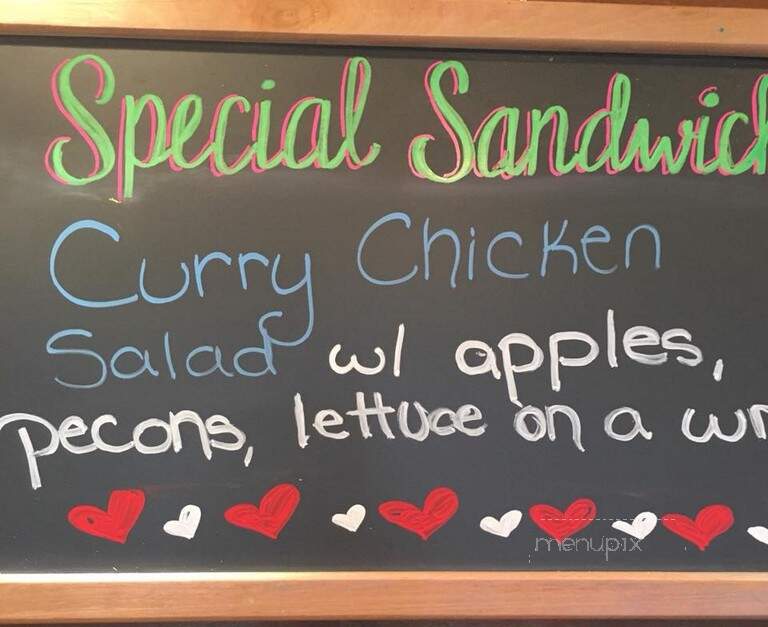 Special Sandwich
Curry Chicken
Salad w/ apples,
pecons, lettuce on a wr
menupix